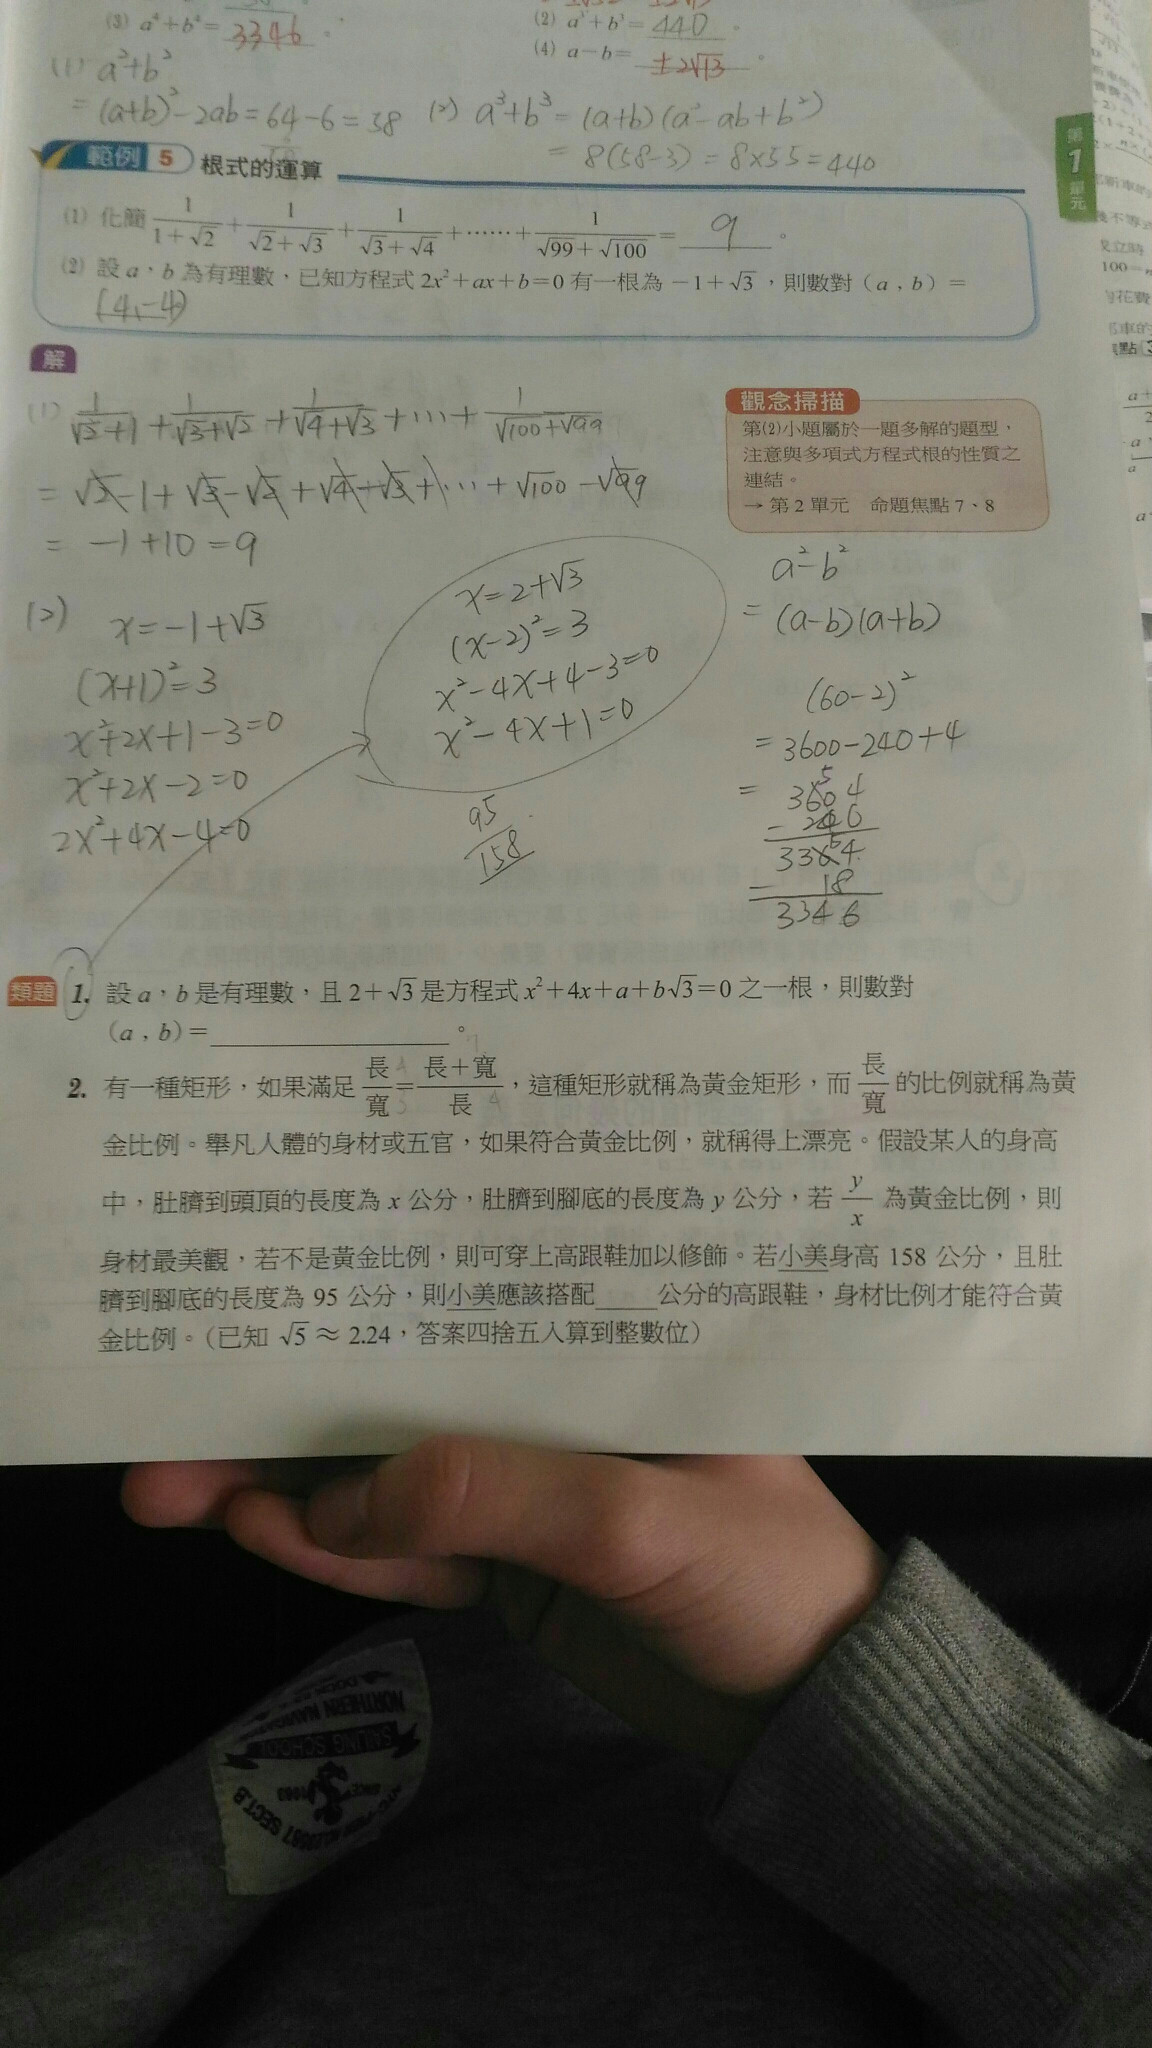 (3) a⁴+b⁴= 3346 。
(2) a³+b³= 440 。
(4) a－b= ±2√13 。
(1) a²+b²
= (a+b)²-2ab = 64-6 = 58
(2) a³+b³ = (a+b)(a²-ab+b²)
= 8(58-3) = 8×55 = 440
第1單元
範例 5 根式的運算
(1) 化簡 1/(1+√2) + 1/(√2+√3) + 1/(√3+√4) +……+ 1/(√99+√100) = 9 。
(2) 設 a，b 為有理數，已知方程式 2x²+ax+b=0 有一根為 －1+√3，則數對（a , b）=
(4,-4)
解
(1) 1/(√2+1) + 1/(√3+√2) + 1/(√4+√3) +…+ 1/(√100+√99)
= √2-1+√3-√2+√4-√3+…+√100-√99
= -1+10=9
觀念掃描
第(2)小題屬於一題多解的題型，
注意與多項式方程式根的性質之
連結。
→ 第 2 單元 命題焦點 7、8
(2) x=-1+√3
(x+1)²=3
x²+2x+1-3=0
x²+2x-2=0
2x²+4x-4=0
x=2+√3
(x-2)²=3
x²-4x+4-3=0
x²-4x+1=0
95/158
a²-b²
= (a-b)(a+b)
(60-2)²
= 3600-240+4
= 3604
- 240
3364
- 18
3346
類題 1. 設 a，b 是有理數，且 2+√3 是方程式 x²+4x+a+b√3=0 之一根，則數對
（a , b）=　　　　。
2. 有一種矩形，如果滿足 長/寬 = (長+寬)/長，這種矩形就稱為黃金矩形，而 長/寬 的比例就稱為黃
金比例。舉凡人體的身材或五官，如果符合黃金比例，就稱得上漂亮。假設某人的身高
中，肚臍到頭頂的長度為 x 公分，肚臍到腳底的長度為 y 公分，若 y/x 為黃金比例，則
身材最美觀，若不是黃金比例，則可穿上高跟鞋加以修飾。若小美身高 158 公分，且肚
臍到腳底的長度為 95 公分，則小美應該搭配____公分的高跟鞋，身材比例才能符合黃
金比例。（已知 √5 ≈ 2.24，答案四捨五入算到整數位）
NORTHERN
SAILING SCHOOL
SECT.B